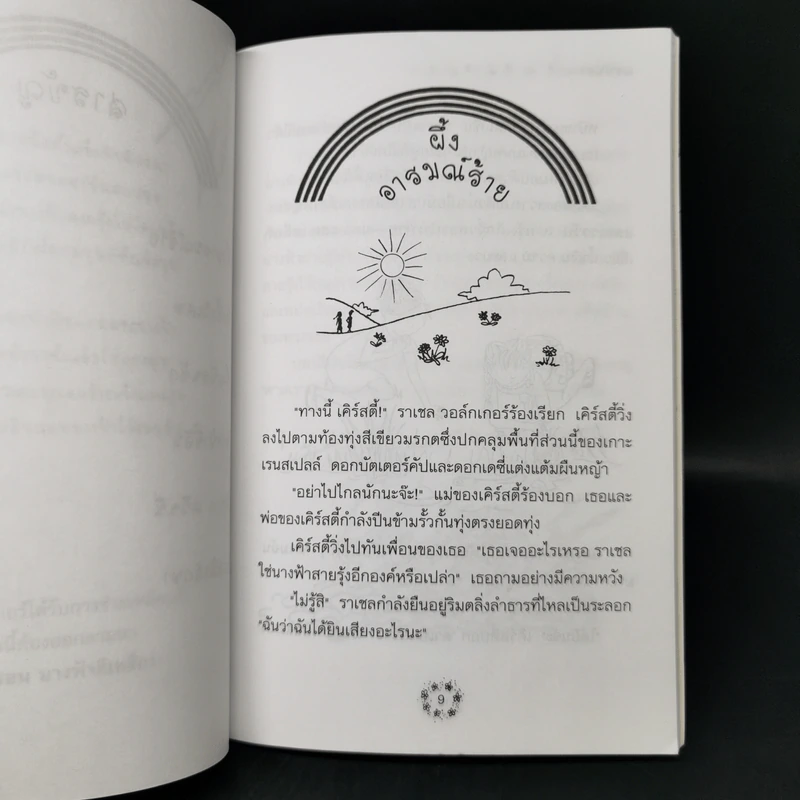 สารบัญ
ผึ้ง
อารมณ์ร้าย
"ทางนี้ เคิร์สตี้!" ราเชล วอล์กเกอร์ร้องเรียก เคิร์สตี้วิ่ง
ลงไปตามท้องทุ่งสีเขียวมรกตซึ่งปกคลุมพื้นที่ส่วนนี้ของเกาะ
เรนสเปลล์ ดอกบัตเตอร์คัปและดอกเดซี่แต่งแต้มผืนหญ้า
"อย่าไปไกลนักนะจ๊ะ!" แม่ของเคิร์สตี้ร้องบอก เธอและ
พ่อของเคิร์สตี้กำลังปีนข้ามรั้วกั้นทุ่งตรงยอดทุ่ง
เคิร์สตี้วิ่งไปทันเพื่อนของเธอ "เธอเจออะไรเหรอ ราเชล
ใช่นางฟ้าสายรุ้งอีกองค์หรือเปล่า" เธอถามอย่างมีความหวัง
"ไม่รู้สิ" ราเชลกำลังยืนอยู่ริมตลิ่งลำธารที่ไหลเป็นระลอก
"ฉันว่าฉันได้ยินเสียงอะไรนะ"
9